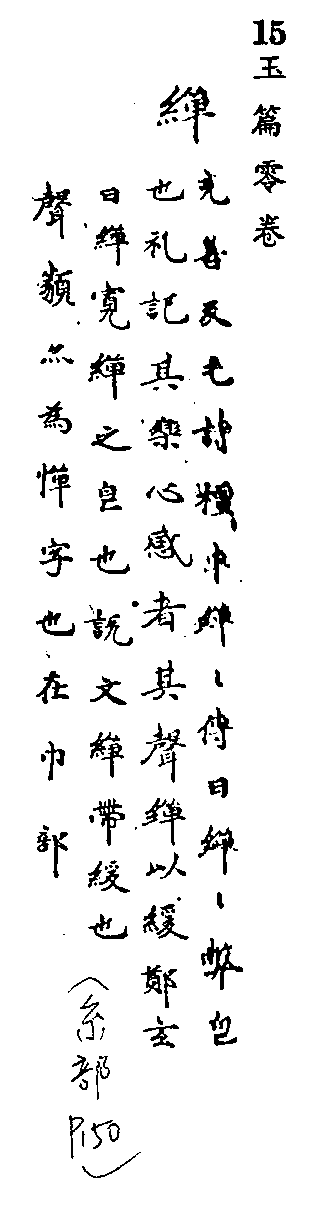 15
玉篇零卷
繟
充善反毛詩檀車繟〻傳曰繟〻弊皃
也礼記其樂心感者其聲繟以緩鄭玄
曰繟寬繟之皃也說文繟帶緩也
聲類亦為惮字也在巾部
(糸部
P.150)